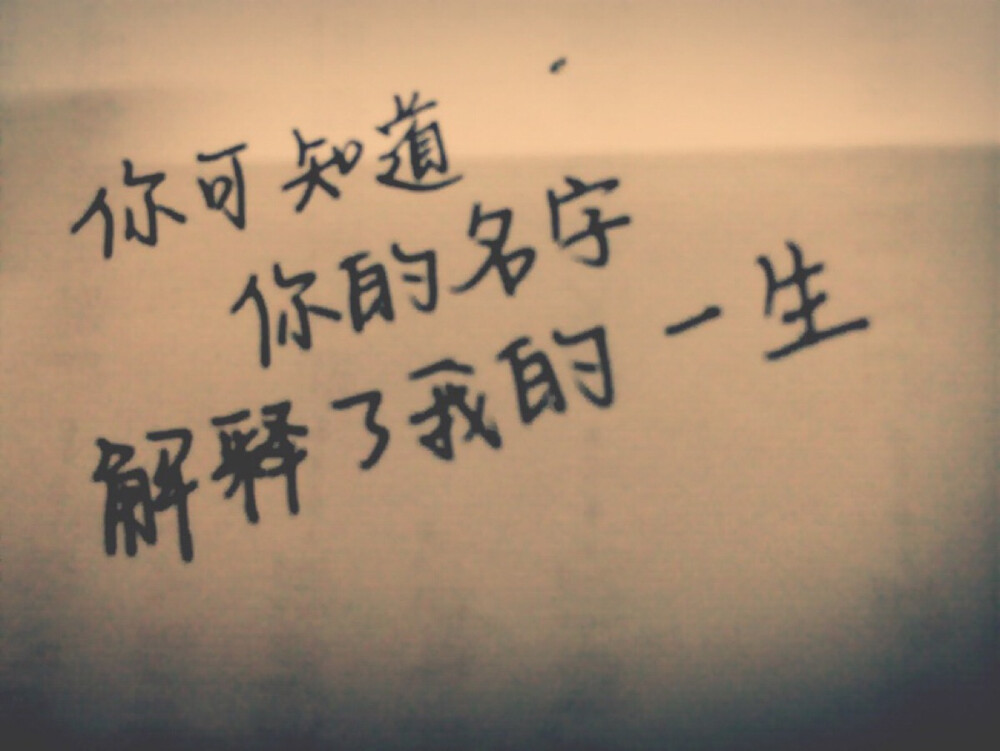 你可知道
你的名字
解释了我的一生